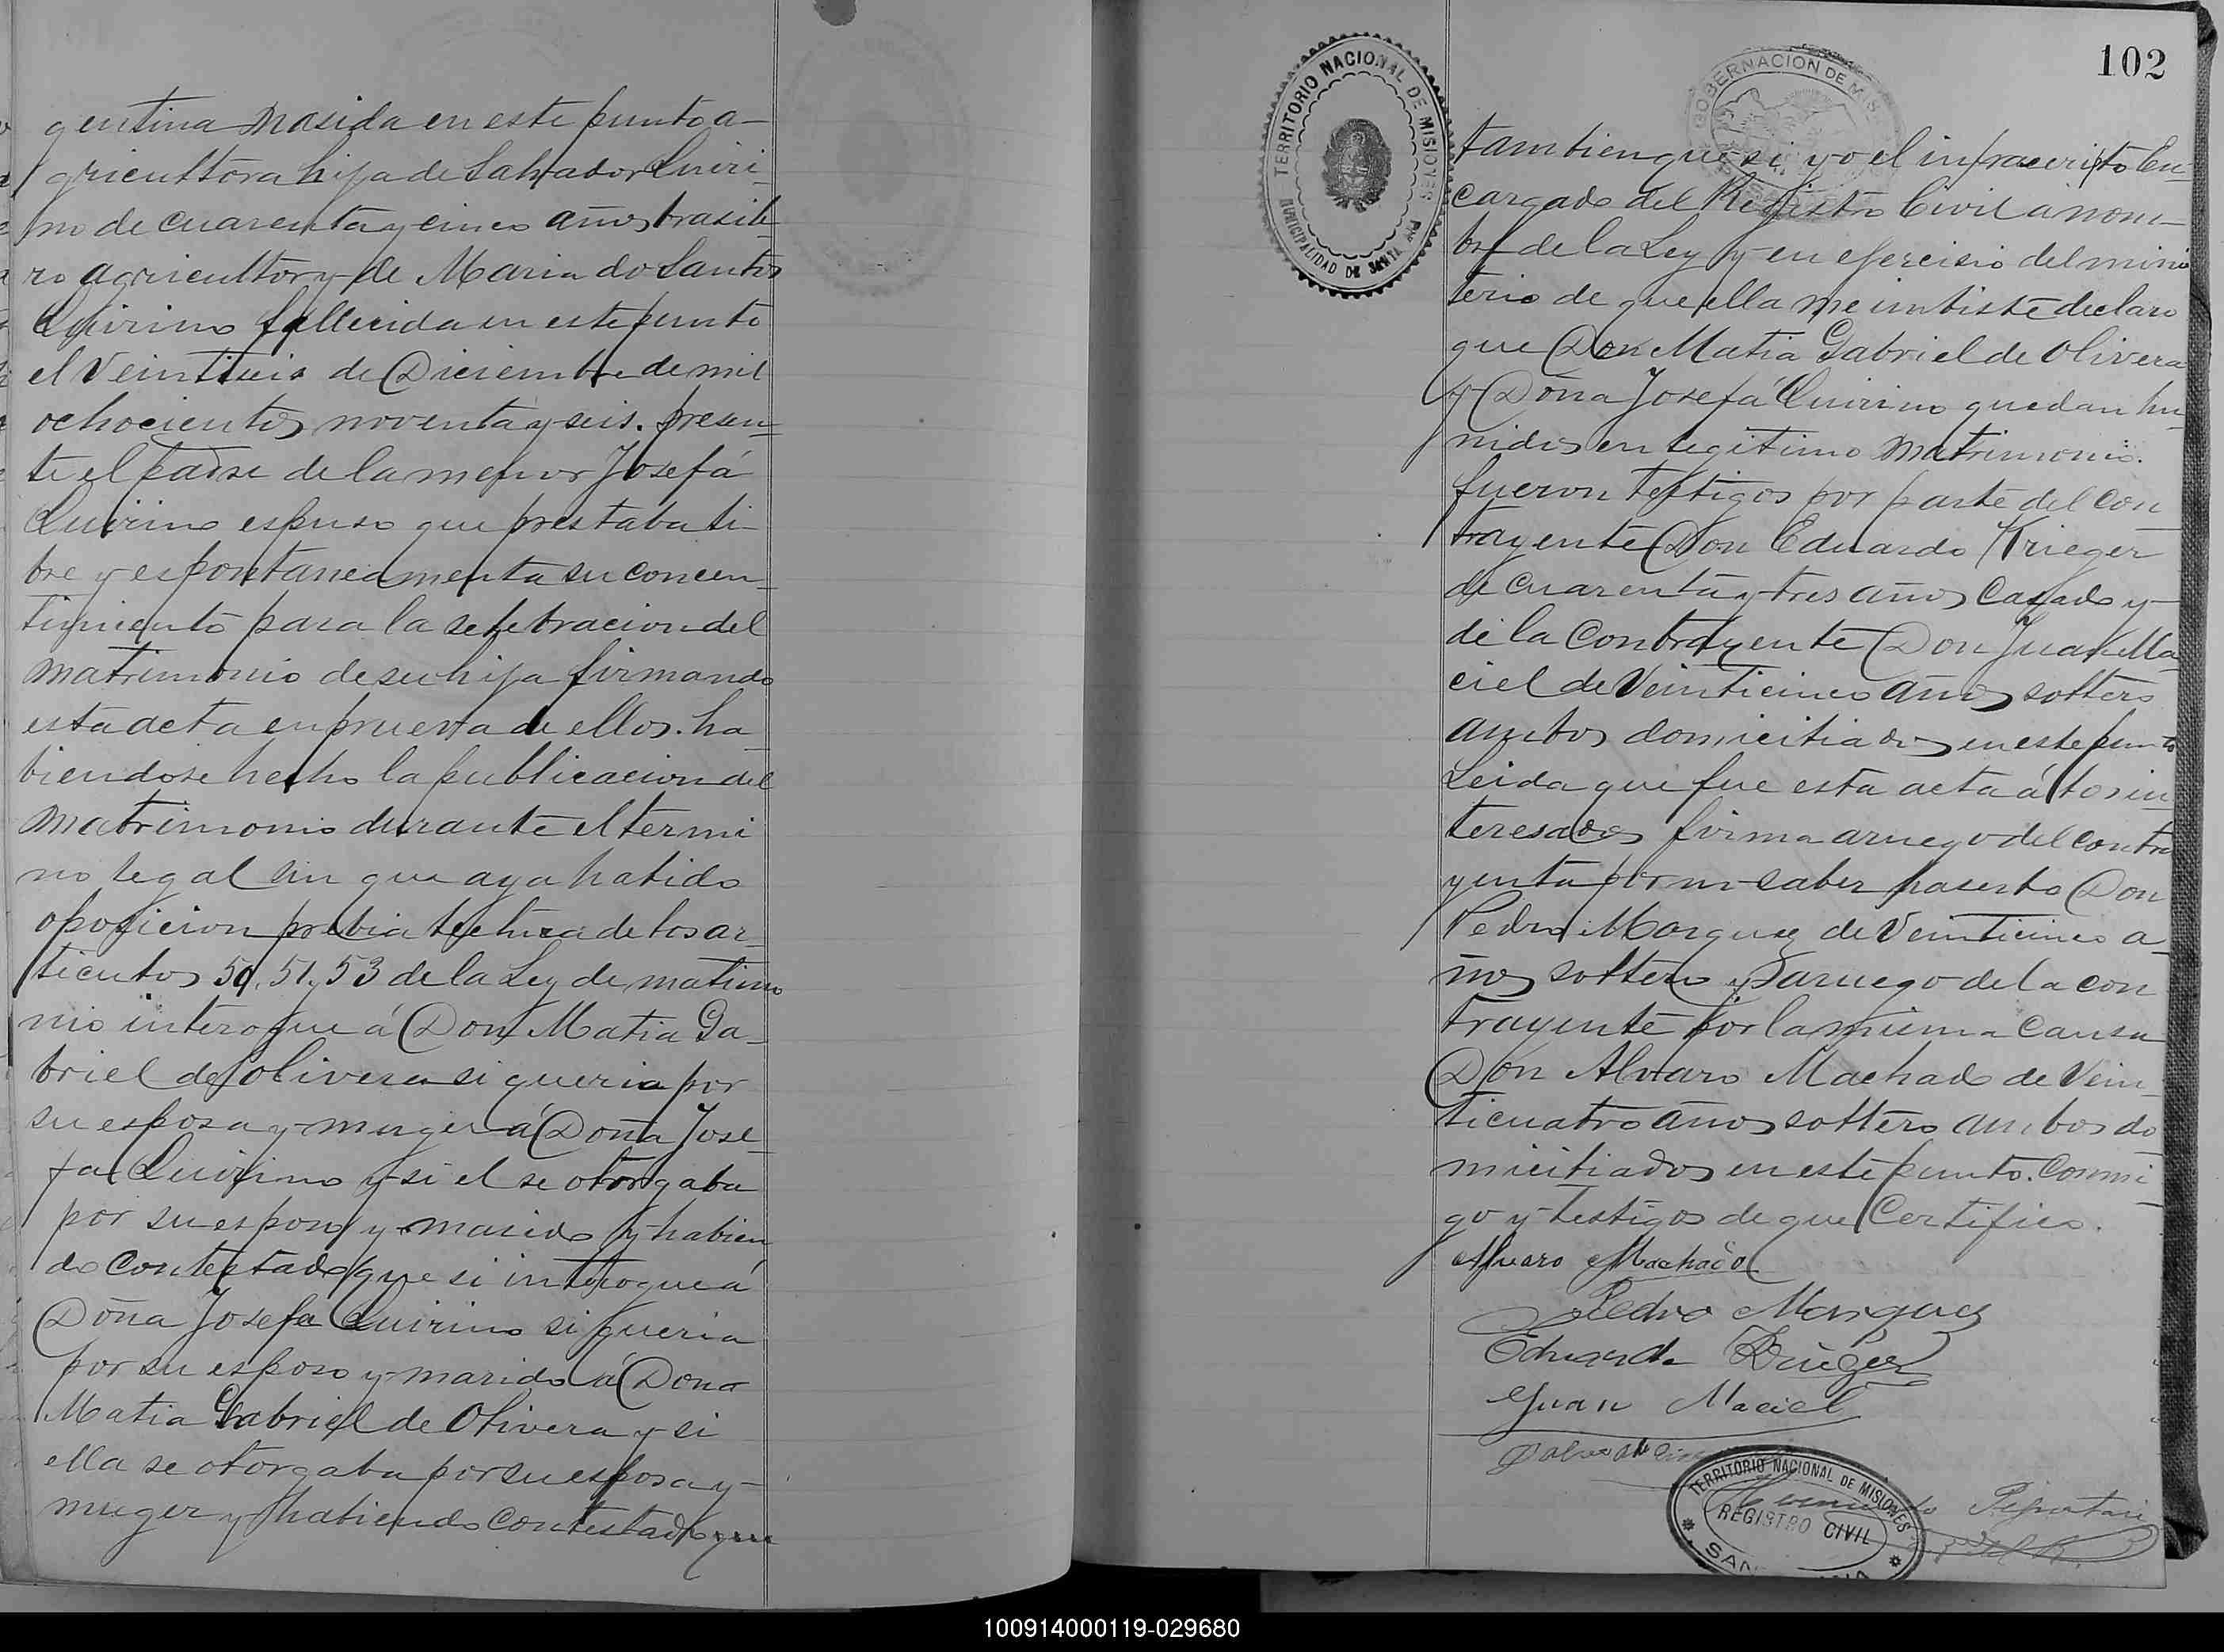 gentina nasida en este punto a-
gricultora hija de Salvador Quiri-
no de cuarenta y cinco años brasile-
ro agricultor y de Maria do Santos
Quirino fallecida en este punto
el Veintiseis de Diciembre de mil
ochocientos noventa y seis. presen-
te el padre de la menor Josefá
Quirino espuso que prestaba li-
bre y espontaneamenta su concen-
timiento para la selebracion del
matrimonio de su hija firmando
esta acta en prueva de ellos. ha-
biendose hecho la publicacion del
Matrimonio durante el termi
no legal sin que aya habido
oposicion prebia lectura de los ar-
ticulos 50, 51 y 53 de la Ley de matrimo
nio interogue á Don Matia Ga-
briel de Olivera si queria por
su esposa y muger á Doña Jose-
fa Quirino y si el se otorgaba
por su esposo y marido y habien
do contestado que si interogue á
Doña Josefa Quirino si queria
por su esposo y marido á Dona
Matia Gabriel de Olivera y si
ella se otorgaba por su esposa y-
muger y habiendo contestado que
102
TERRITORIO NACIONAL DE MISIONES
MUNICIPALIDAD DE SANTA ANA
GOBERNACION DE MIS
tambien que si yo el infrascripto En-
cargado del Registro Civil á nom-
bre de la Ley y en ejercisio del minis
terio de que ella me imbiste declaro
que Don Matia Gabriel de Olivera
y Doña Josefá Quirino quedan hu-
nidos en legitimo Matrimonio.
fueron testigos por parte del con-
trayente Don Eduardo Krieger
de cuarenta y tres años casado y-
de la contrayente Don Juan Ma-
ciel de Veinticinco años soltero
ambos domicitiados en este punto
Leida que fue esta acta á los in-
teresados firma aruego del contra
yenta por no saber haserlo Don
Pedro Marquez de Veinticinco a-
ños soltero y aruego de la con
trayente por la misma causa
Don Alvaro Machado de Vein-
ticuatro años soltero ambos do-
micitiados en este punto. Conmi-
go y testigos de que Certifico.
Alvaro Machado
Pedro Marquez
Eduardo Krieger
Juan Maciel
TERRITORIO NACIONAL DE MISIONES
REGISTRO CIVIL
100914000119-029680